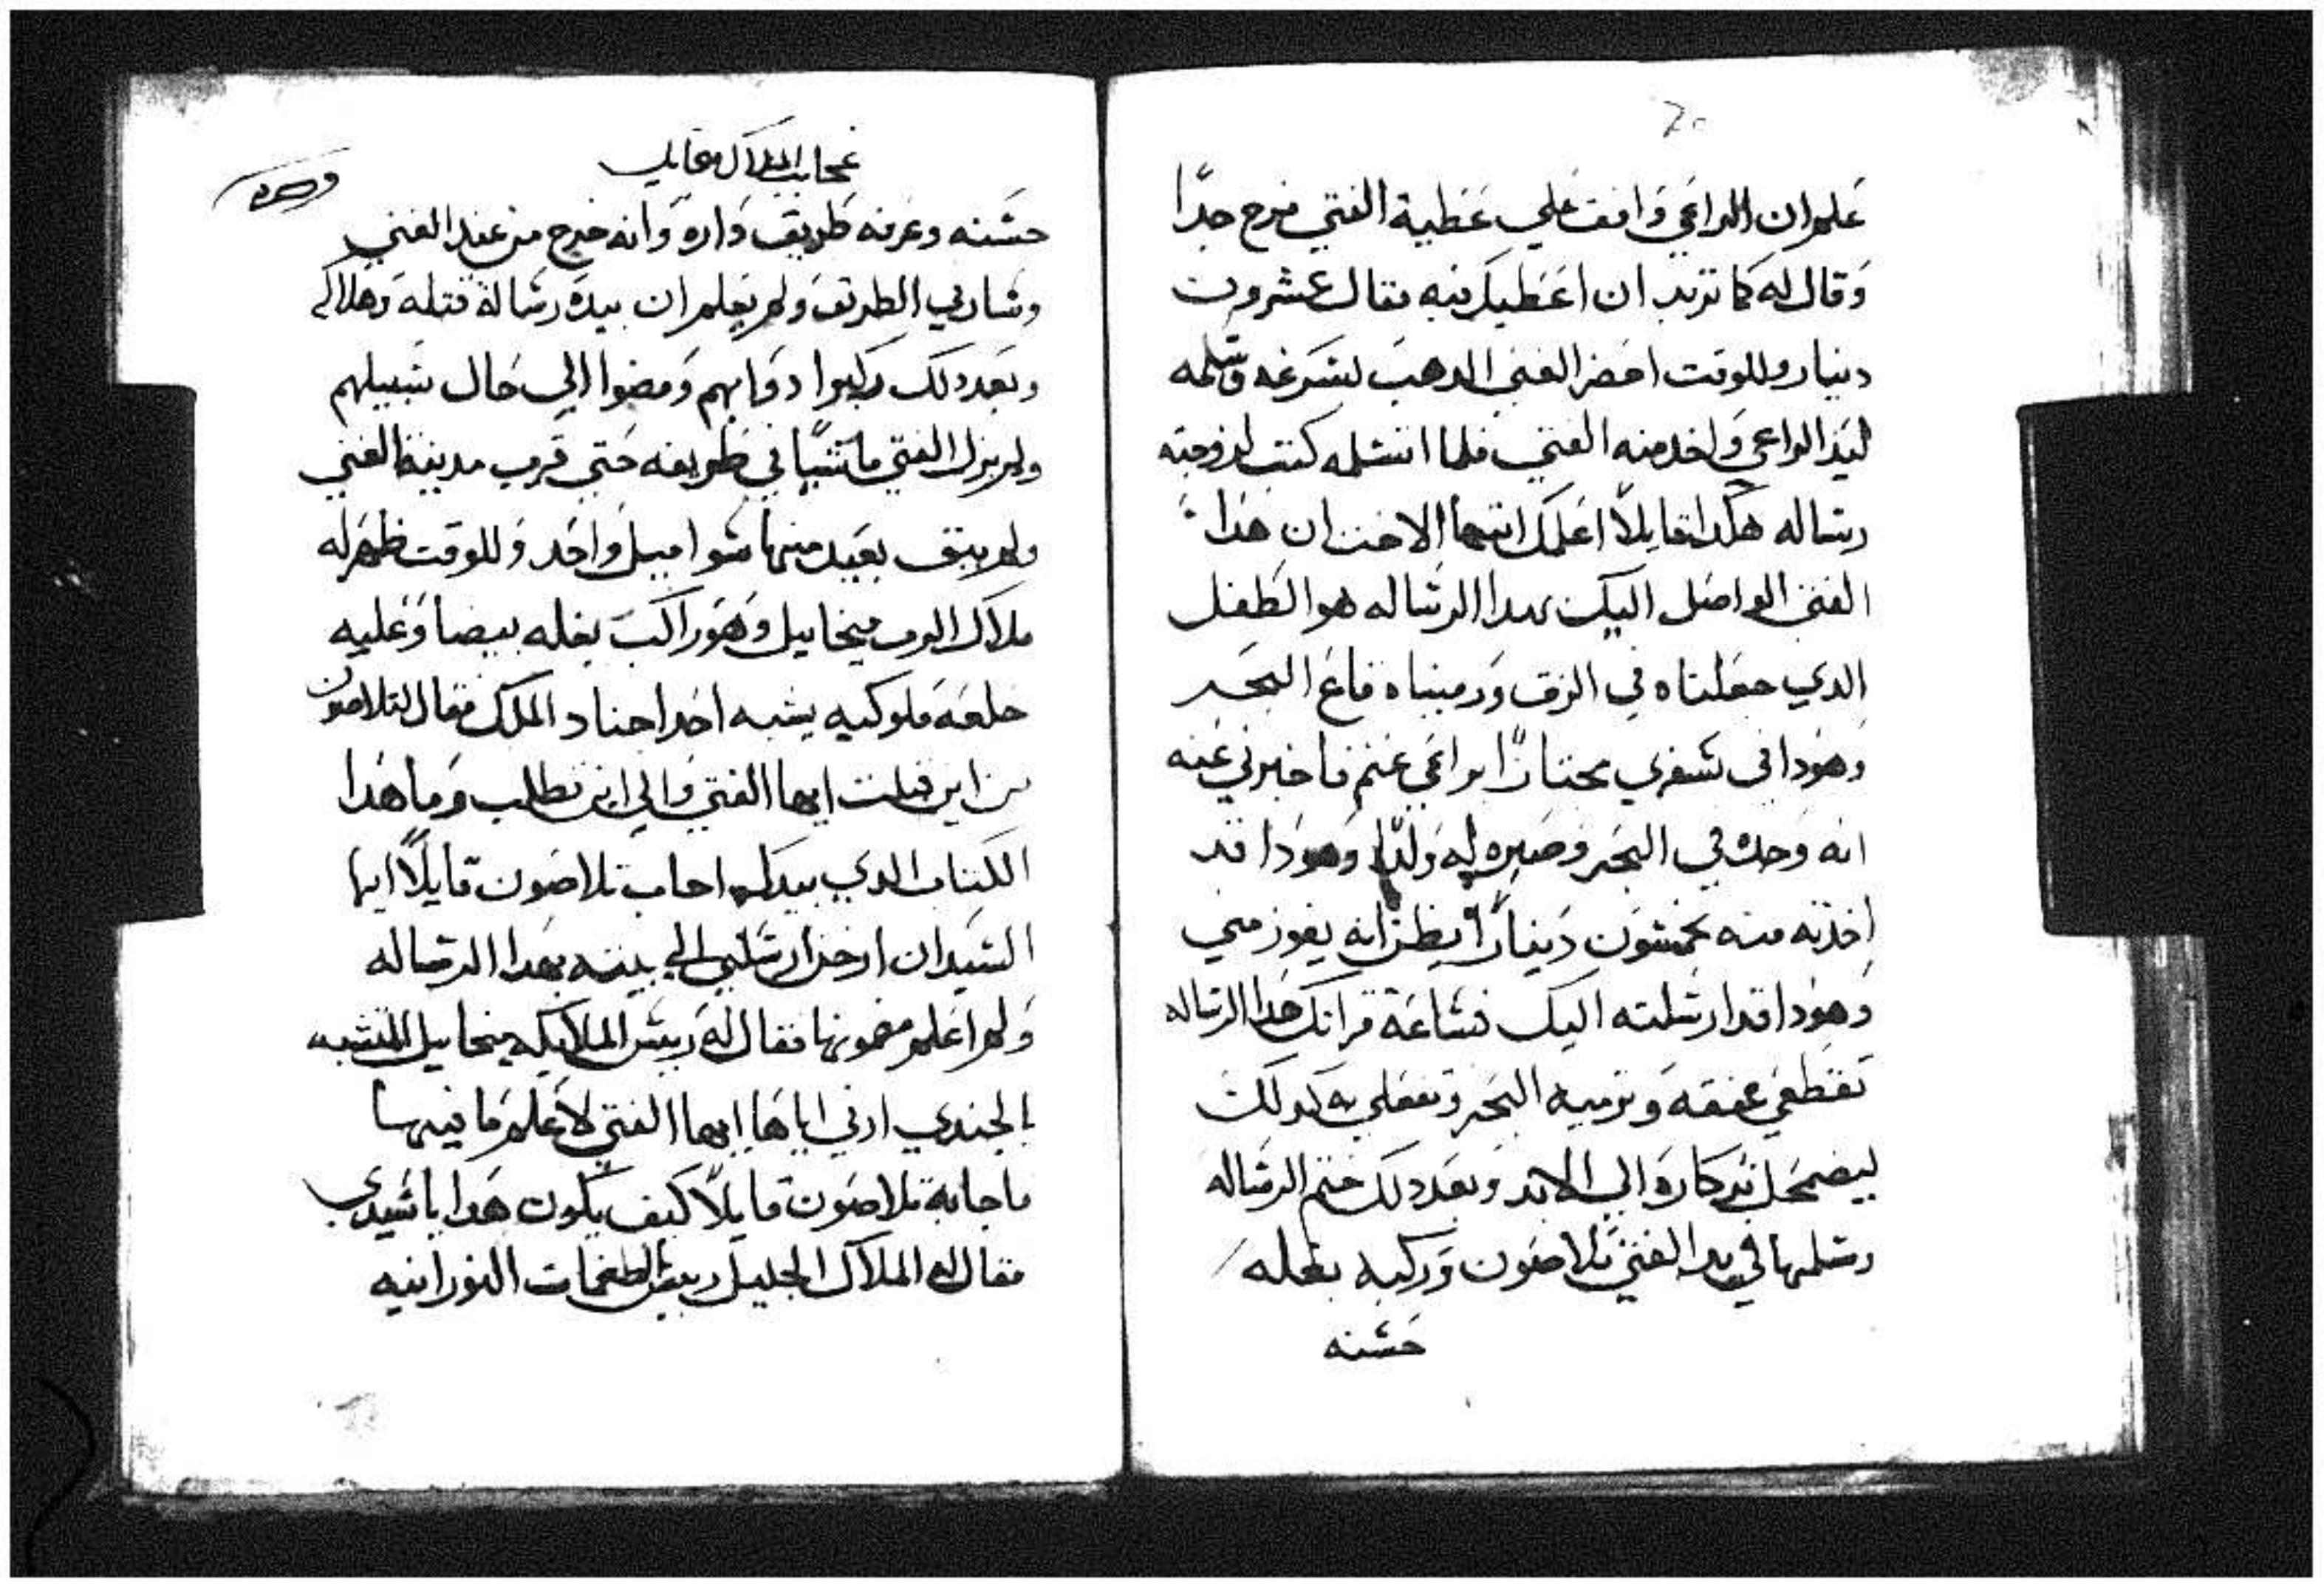 علم ان الراعي وافق علي عطية الفتي فرح جدًا
وقال له كما تريد ان اعطيك فيه فقال عشرون
دينار وللوقت احضر الغني الدهب بسرعه وسلمه
ليد الراعي واخد منه الفتي فلما استلمه كتب لزوجته
رساله هكدا قايلاً اعلمك ايتها الاخت ان هدا
الفتي الواصل اليك بهدا الرساله هو الطفل
الدي جعلناه في الزق ورميناه قاع البحر
وهودا في سفري مجتازًا براعي غنم فاخبرني عنه
انه وجده في البحر وصيره له ولدًا وهودا قد
اخدته منه بخمسون دينارًا يظن انه يفوز مني
وهودا قد ارسلته اليك فساعة قراتك هدا الرساله
تقطعي عنقه وترميه البحر وتفعلي به كدلك
ليضمحل تدكاره الي الابد وبعد دلك ختم الرساله
وسلمها في يد الفتي تلاصون وركبه بغله
حسنه
عجايب الملاك ميخاييل
حسنه وعرفه طريق داره وانه خرج من عند الغني
وسار في الطريق ولم يعلم ان بيده رسالة قتله وهلاكه
وبعد دلك ركبوا دوابهم ومضوا الي حال سبيلهم
ولم يزل الفتي ماشيًا في طريقه حتي قرب مدينة الغني
ولم يبق بعيد منها سوا ميل واحد وللوقت ظهر له
ملاك الرب ميخاييل وهو راكب بغله بيضا وعليه
خلعه ملوكيه يشبه احد اجناد الملك فقال لتلاصون
من اين قبلت ايها الفتي والي اين تطلب وما هدا
الكتاب الدي بيدك اجاب تلاصون قايلاً ايها
السيد ان ارخن ارسلني الي بيته بهدا الرساله
ولم اعلم مضمونها فقال له رييس الملايكه ميخاييل المتشبه
بالجندي ارني اياها ايها الفتي لاعلم ما فيها
فاجابة تلاصون قايلاً كيف يكون هدا يا سيدي
فقال له الملاك الجليل رييس الطغمات النورانيه